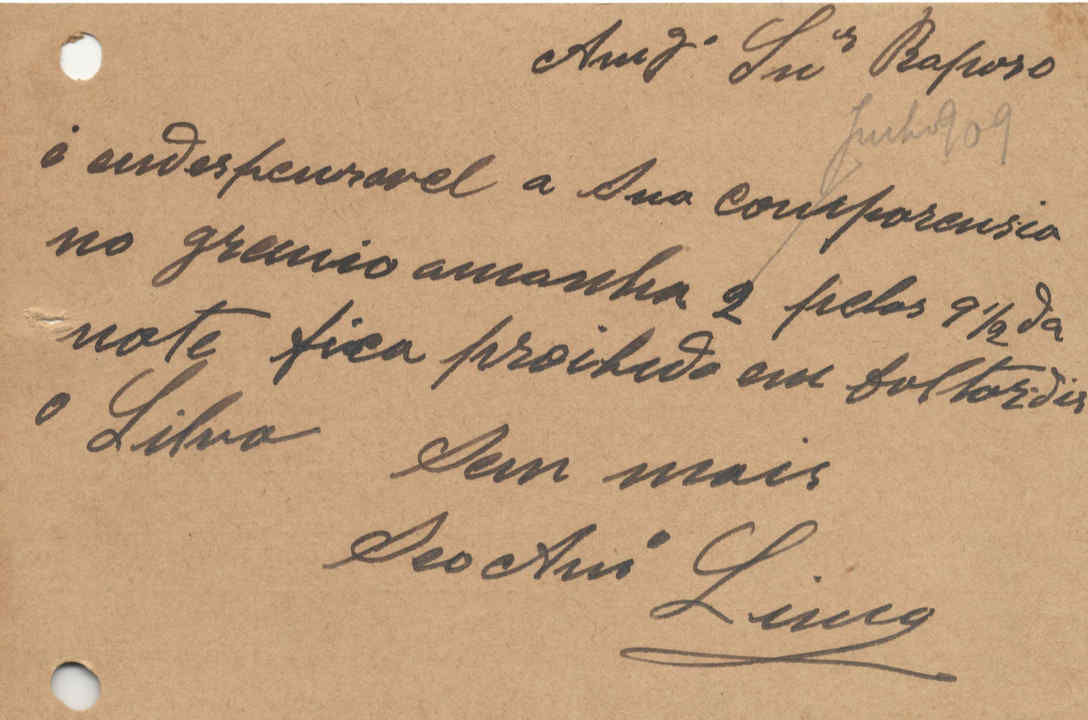 Amg.º Snr Raposo
Junho 909
é endespensavel a sua comporensia
no gremio amanha 2 pelas 9 1/2 da
note fica proibido em foltordis
o Silva
Sem mais
Seo Amº
Lima